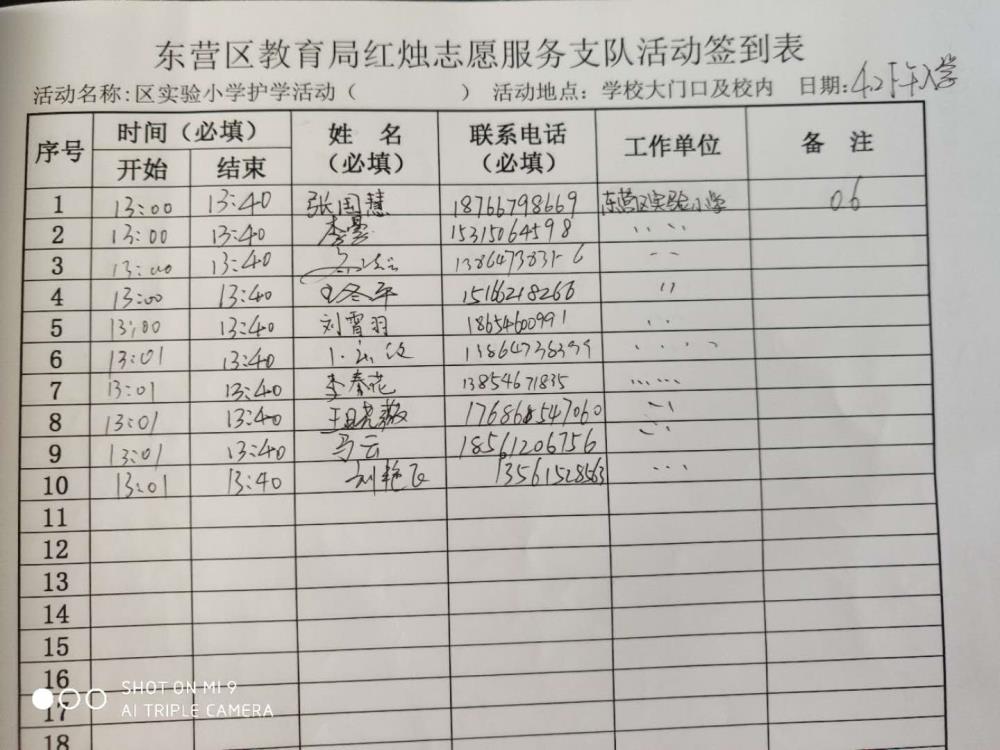 东营区教育局红烛志愿服务支队活动签到表
活动名称:区实验小学护学活动（ ） 活动地点：学校大门口及校内 日期:4.2下午入学
序号 时间（必填） 姓 名（必填） 联系电话（必填） 工作单位 备 注
开始 结束
1 13:00 13:40 张国慧 18766798669 东营区实验小学 06
2 13:00 13:40 李 15315064598 、、、、
3 13:00 13:40
4 13:00 13:40 王冬平 15166218266 〃
5 13:00 13:40 刘霄羽 18654600991 、、
6 13:01 13:40 13864738399 、、、、
7 13:01 13:40 李秦花 13854671835
8 13:01 13:40 17686547060
9 13:01 13:40 马云 18561206756
10 13:01 13:40 刘艳飞 13561528563 、、、
11
12
13
14
15
16
17
18
SHOT ON MI 9
AI TRIPLE CAMERA